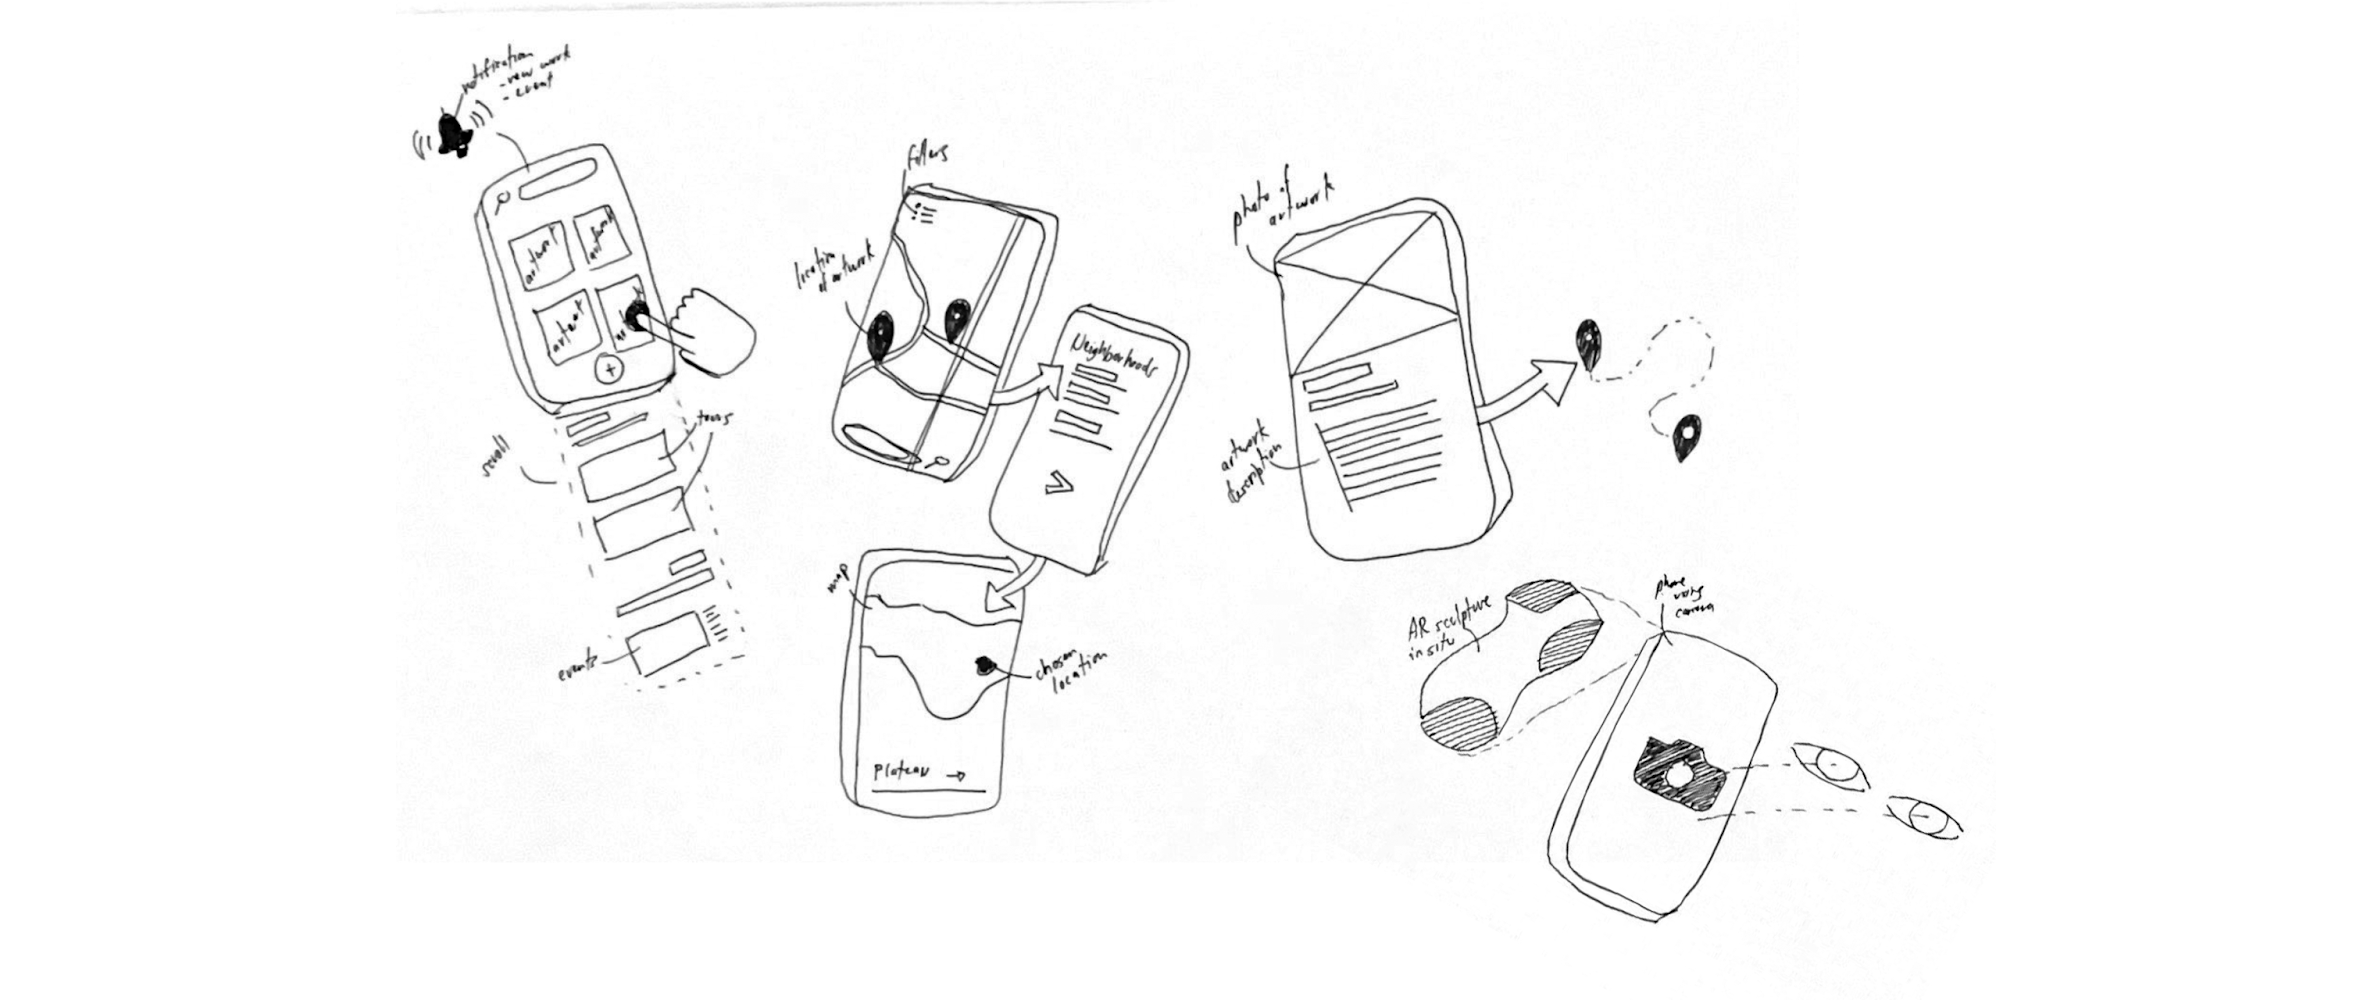 notification
- new work
- event
artwork
artwork
artwork
scroll
tours
events
filters
location
of artwork
Neighborhoods
map
chosen
location
Plateau →
photo of
artwork
artwork
description
AR sculpture
in situ
phone
using
camera